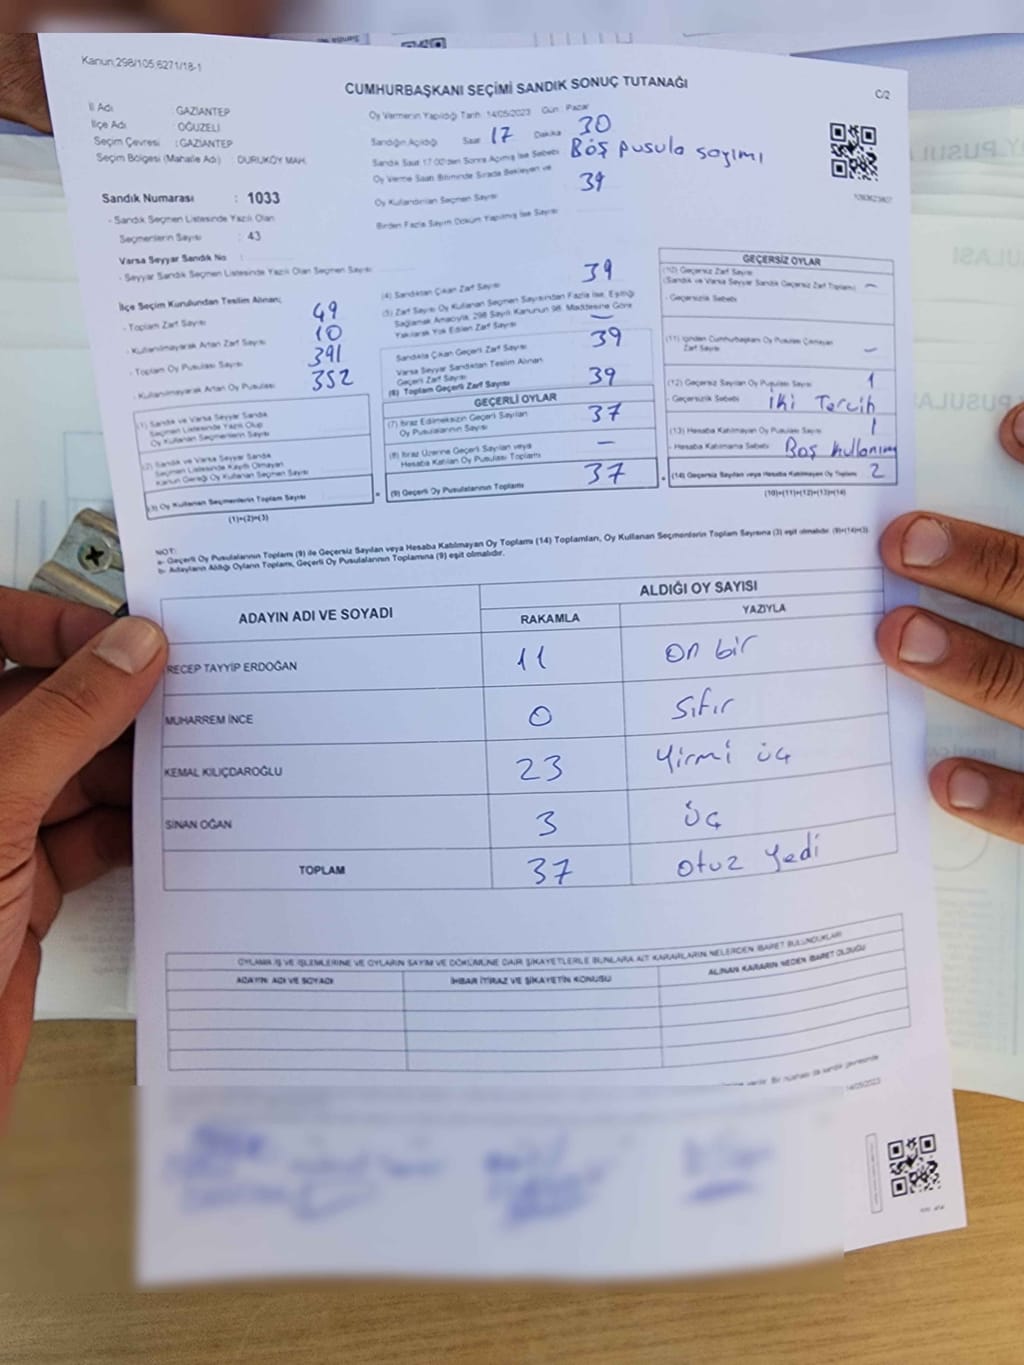 Kanun;298/105,6271/18-1
CUMHURBAŞKANI SEÇİMİ SANDIK SONUÇ TUTANAĞI
C/2
İl Adı : GAZİANTEP
İlçe Adı : OĞUZELİ
Seçim Çevresi : GAZİANTEP
Seçim Bölgesi (Mahalle Adı) : DURUKÖY MAH.
Oy Vermenin Yapıldığı Tarih: 14/05/2023 Gün: Pazar
Sandığın Açıldığı Saat 17 Dakika 30
Sandık Saat 17:00'den Sonra Açılmış İse Sebebi Boş pusula sayımı
Oy Verme Saati Bitiminde Sırada Bekleyen ve
Oy Kullandırılan Seçmen Sayısı 39
Birden Fazla Sayım Döküm Yapılmış İse Sayısı
Sandık Numarası : 1033
- Sandık Seçmen Listesinde Yazılı Olan
Seçmenlerin Sayısı : 43
Varsa Seyyar Sandık No :
- Seyyar Sandık Seçmen Listesinde Yazılı Olan Seçmen Sayısı:
İlçe Seçim Kurulundan Teslim Alınan;
- Toplam Zarf Sayısı 49
- Kullanılmayarak Artan Zarf Sayısı 10
- Toplam Oy Pusulası Sayısı 391
- Kullanılmayarak Artan Oy Pusulası 352
(1) Sandık ve Varsa Seyyar Sandık
Seçmen Listesinde Yazılı Olup
Oy Kullanan Seçmenlerin Sayısı
(2) Sandık ve Varsa Seyyar Sandık
Seçmen Listesinde Kayıtlı Olmayan
Kanun Gereği Oy Kullanan Seçmen Sayısı
(3) Oy Kullanan Seçmenlerin Toplam Sayısı
(1)+(2)=(3)
(4) Sandıktan Çıkan Zarf Sayısı 39
(5) Zarf Sayısı Oy Kullanan Seçmen Sayısından Fazla İse, Eşitliği
Sağlamak Amacıyla, 298 Sayılı Kanunun 98. Maddesine Göre
Yakılarak Yok Edilen Zarf Sayısı —
Sandıkta Çıkan Geçerli Zarf Sayısı 39
Varsa Seyyar Sandıktan Teslim Alınan
Geçerli Zarf Sayısı
(6) Toplam Geçerli Zarf Sayısı 39
GEÇERLİ OYLAR
(7) İtiraz Edilmeksizin Geçerli Sayılan
Oy Pusulalarının Sayısı 37
(8) İtiraz Üzerine Geçerli Sayılan veya
Hesaba Katılan Oy Pusulası Toplamı —
(9) Geçerli Oy Pusulalarının Toplamı 37
GEÇERSİZ OYLAR
(10) Geçersiz Zarf Sayısı
(Sandık ve Varsa Seyyar Sandık Geçersiz Zarf Toplamı) —
- Geçersizlik Sebebi
(11) İçinden Cumhurbaşkanı Oy Pusulası Çıkmayan
Zarf Sayısı —
(12) Geçersiz Sayılan Oy Pusulası Sayısı 1
- Geçersizlik Sebebi İki Tercih
(13) Hesaba Katılmayan Oy Pusulası Sayısı 1
- Hesaba Katılmama Sebebi Boş kullanım
(14) Geçersiz Sayılan veya Hesaba Katılmayan Oy Toplamı 2
(10)+(11)+(12)+(13)=(14)
NOT:
a- Geçerli Oy Pusulalarının Toplamı (9) ile Geçersiz Sayılan veya Hesaba Katılmayan Oy Toplamı (14) Toplamları, Oy Kullanan Seçmenlerin Toplam Sayısına (3) eşit olmalıdır. (9)+(14)=(3)
b- Adayların Aldığı Oyların Toplamı, Geçerli Oy Pusulalarının Toplamına (9) eşit olmalıdır.
ADAYIN ADI VE SOYADI
ALDIĞI OY SAYISI
RAKAMLA YAZIYLA
RECEP TAYYİP ERDOĞAN 11 on bir
MUHARREM İNCE 0 sıfır
KEMAL KILIÇDAROĞLU 23 Yirmi üç
SİNAN OĞAN 3 üç
TOPLAM 37 otuz yedi
OYLAMA İŞ VE İŞLEMLERİNE VE OYLARIN SAYIM VE DÖKÜMÜNE DAİR ŞİKAYETLERLE BUNLARA AİT KARARLARIN NELERDEN İBARET BULUNDUKLARI
ADAYIN ADI VE SOYADI İHBAR İTİRAZ VE ŞİKAYETİN KONUSU ALINAN KARARIN NEDEN İBARET OLDUĞU
14/05/2023